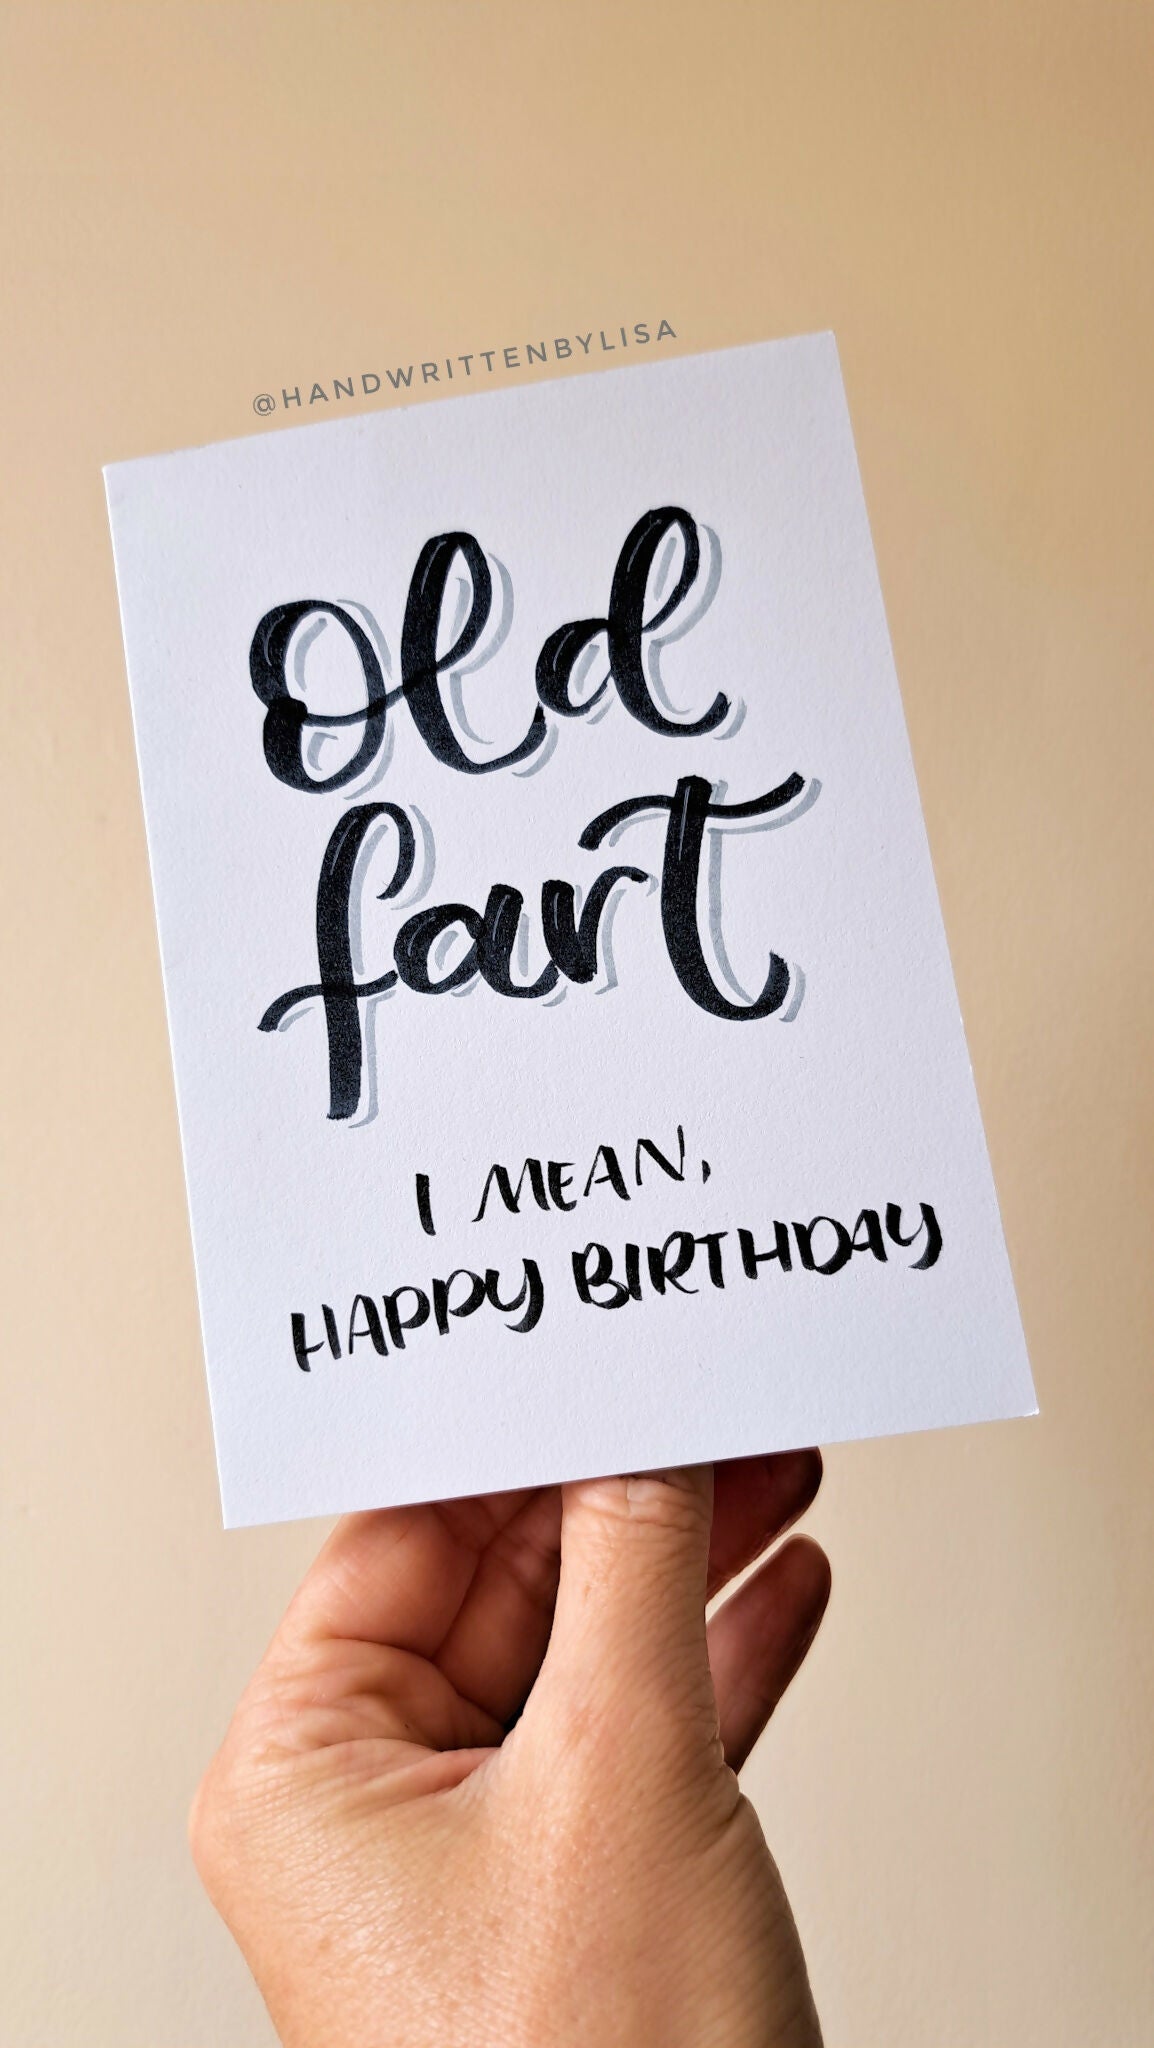 @HANDWRITTENBYLISA
Old
fart
I MEAN,
HAPPY BIRTHDAY